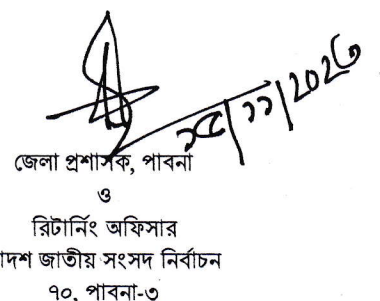 ২৫/১১/২০২৩
জেলা প্রশাসক, পাবনা
ও
রিটার্নিং অফিসার
দশ জাতীয় সংসদ নির্বাচন
৭০, পাবনা-৩